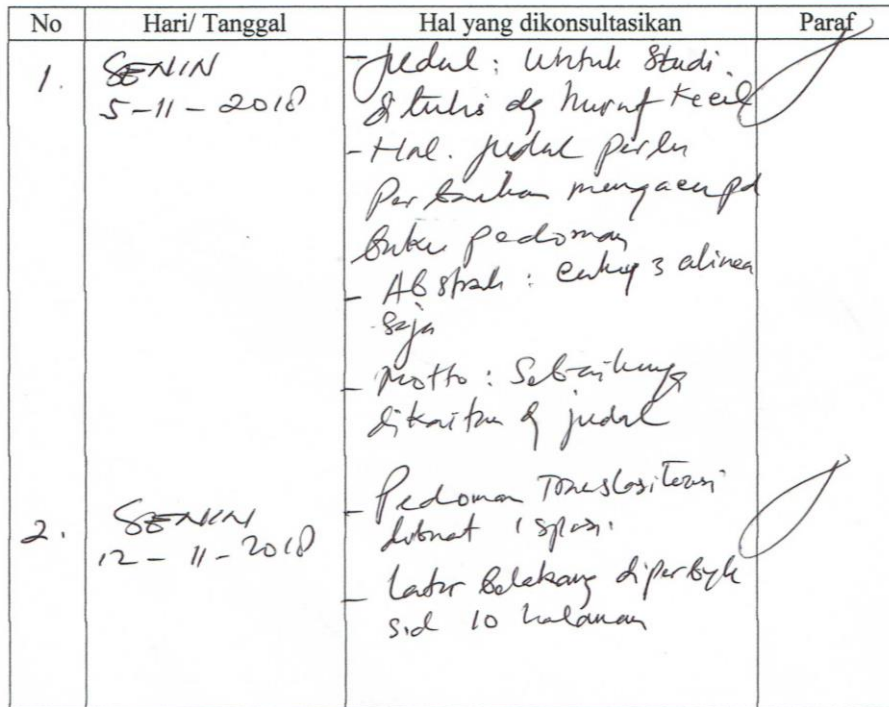 No Hari/ Tanggal Hal yang dikonsultasikan Paraf
1. SENIN - Judul : Untuk Studi
5-11-2018 ditulis dg huruf kecil
- Hal. judul perlu
perbaikan mengacu pd
buku pedoman
- Abstrak : cukup 3 alinea
saja
- Motto : Sebaiknya
dikaitkan dg judul
2. SENIN - Pedoman Transliterasi
12-11-2018 dibuat 1 spasi.
- Latar Belakang diperbyk
s.d 10 halaman